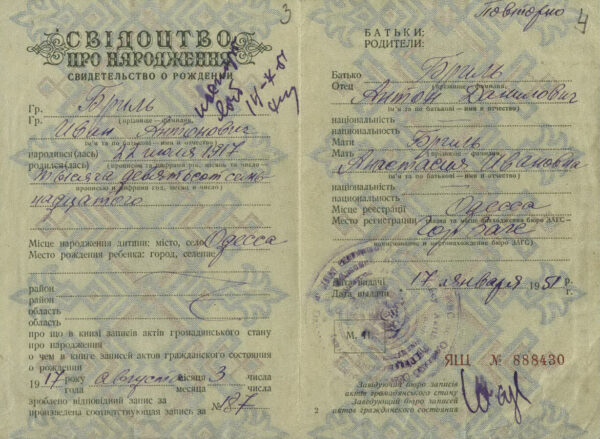 3
СВІДОЦТВО
ПРО НАРОДЖЕННЯ
СВИДЕТЕЛЬСТВО О РОЖДЕНИИ
Гр. Бриль
Гр. (прізвище – фамилия,
Иван Антонович
ім'я та по батькові – имя и отчество)
народився(лась) 22 июля 1917
родился(лась)
тысяча девятьсот семь-
прописью и цифрами год, месяц и число)
надцатого
Місце народження дитини: місто, село Одесса
Место рождения ребенка: город, селение
район
район
область
область
про що в книзі записів актів громадянського стану
про народження
о чем в книге записей актов гражданского состояния
о рождении
1917 року августа місяця 3 числа
года месяца числа
зроблено відповідний запис за № 187
произведена соответствующая запись за
Повторно
4
БАТЬКИ:
РОДИТЕЛИ:
Батько Бриль
Отец (прізвище – фамилия,
Антон Данилович
ім'я та по батькові – имя и отчество)
національність
национальность
Мати Бриль
Мать (прізвище – фамилия,
Анастасия Ивановна
ім'я та по батькові – имя и отчество)
національність
национальность
Місце реєстрації Одесса
Место регистрации (назва та місце находження бюро ЗАГС –
ГорЗагс
наименование и местонахождение бюро ЗАГС)
Дата видачі 17 января 1951 р.
Дата выдачи г.
М. П.
ЯЩ № 888430
Завідуючий бюро записів
актів громадянського стану
Заведующий бюро записей
актов гражданского состояния
2